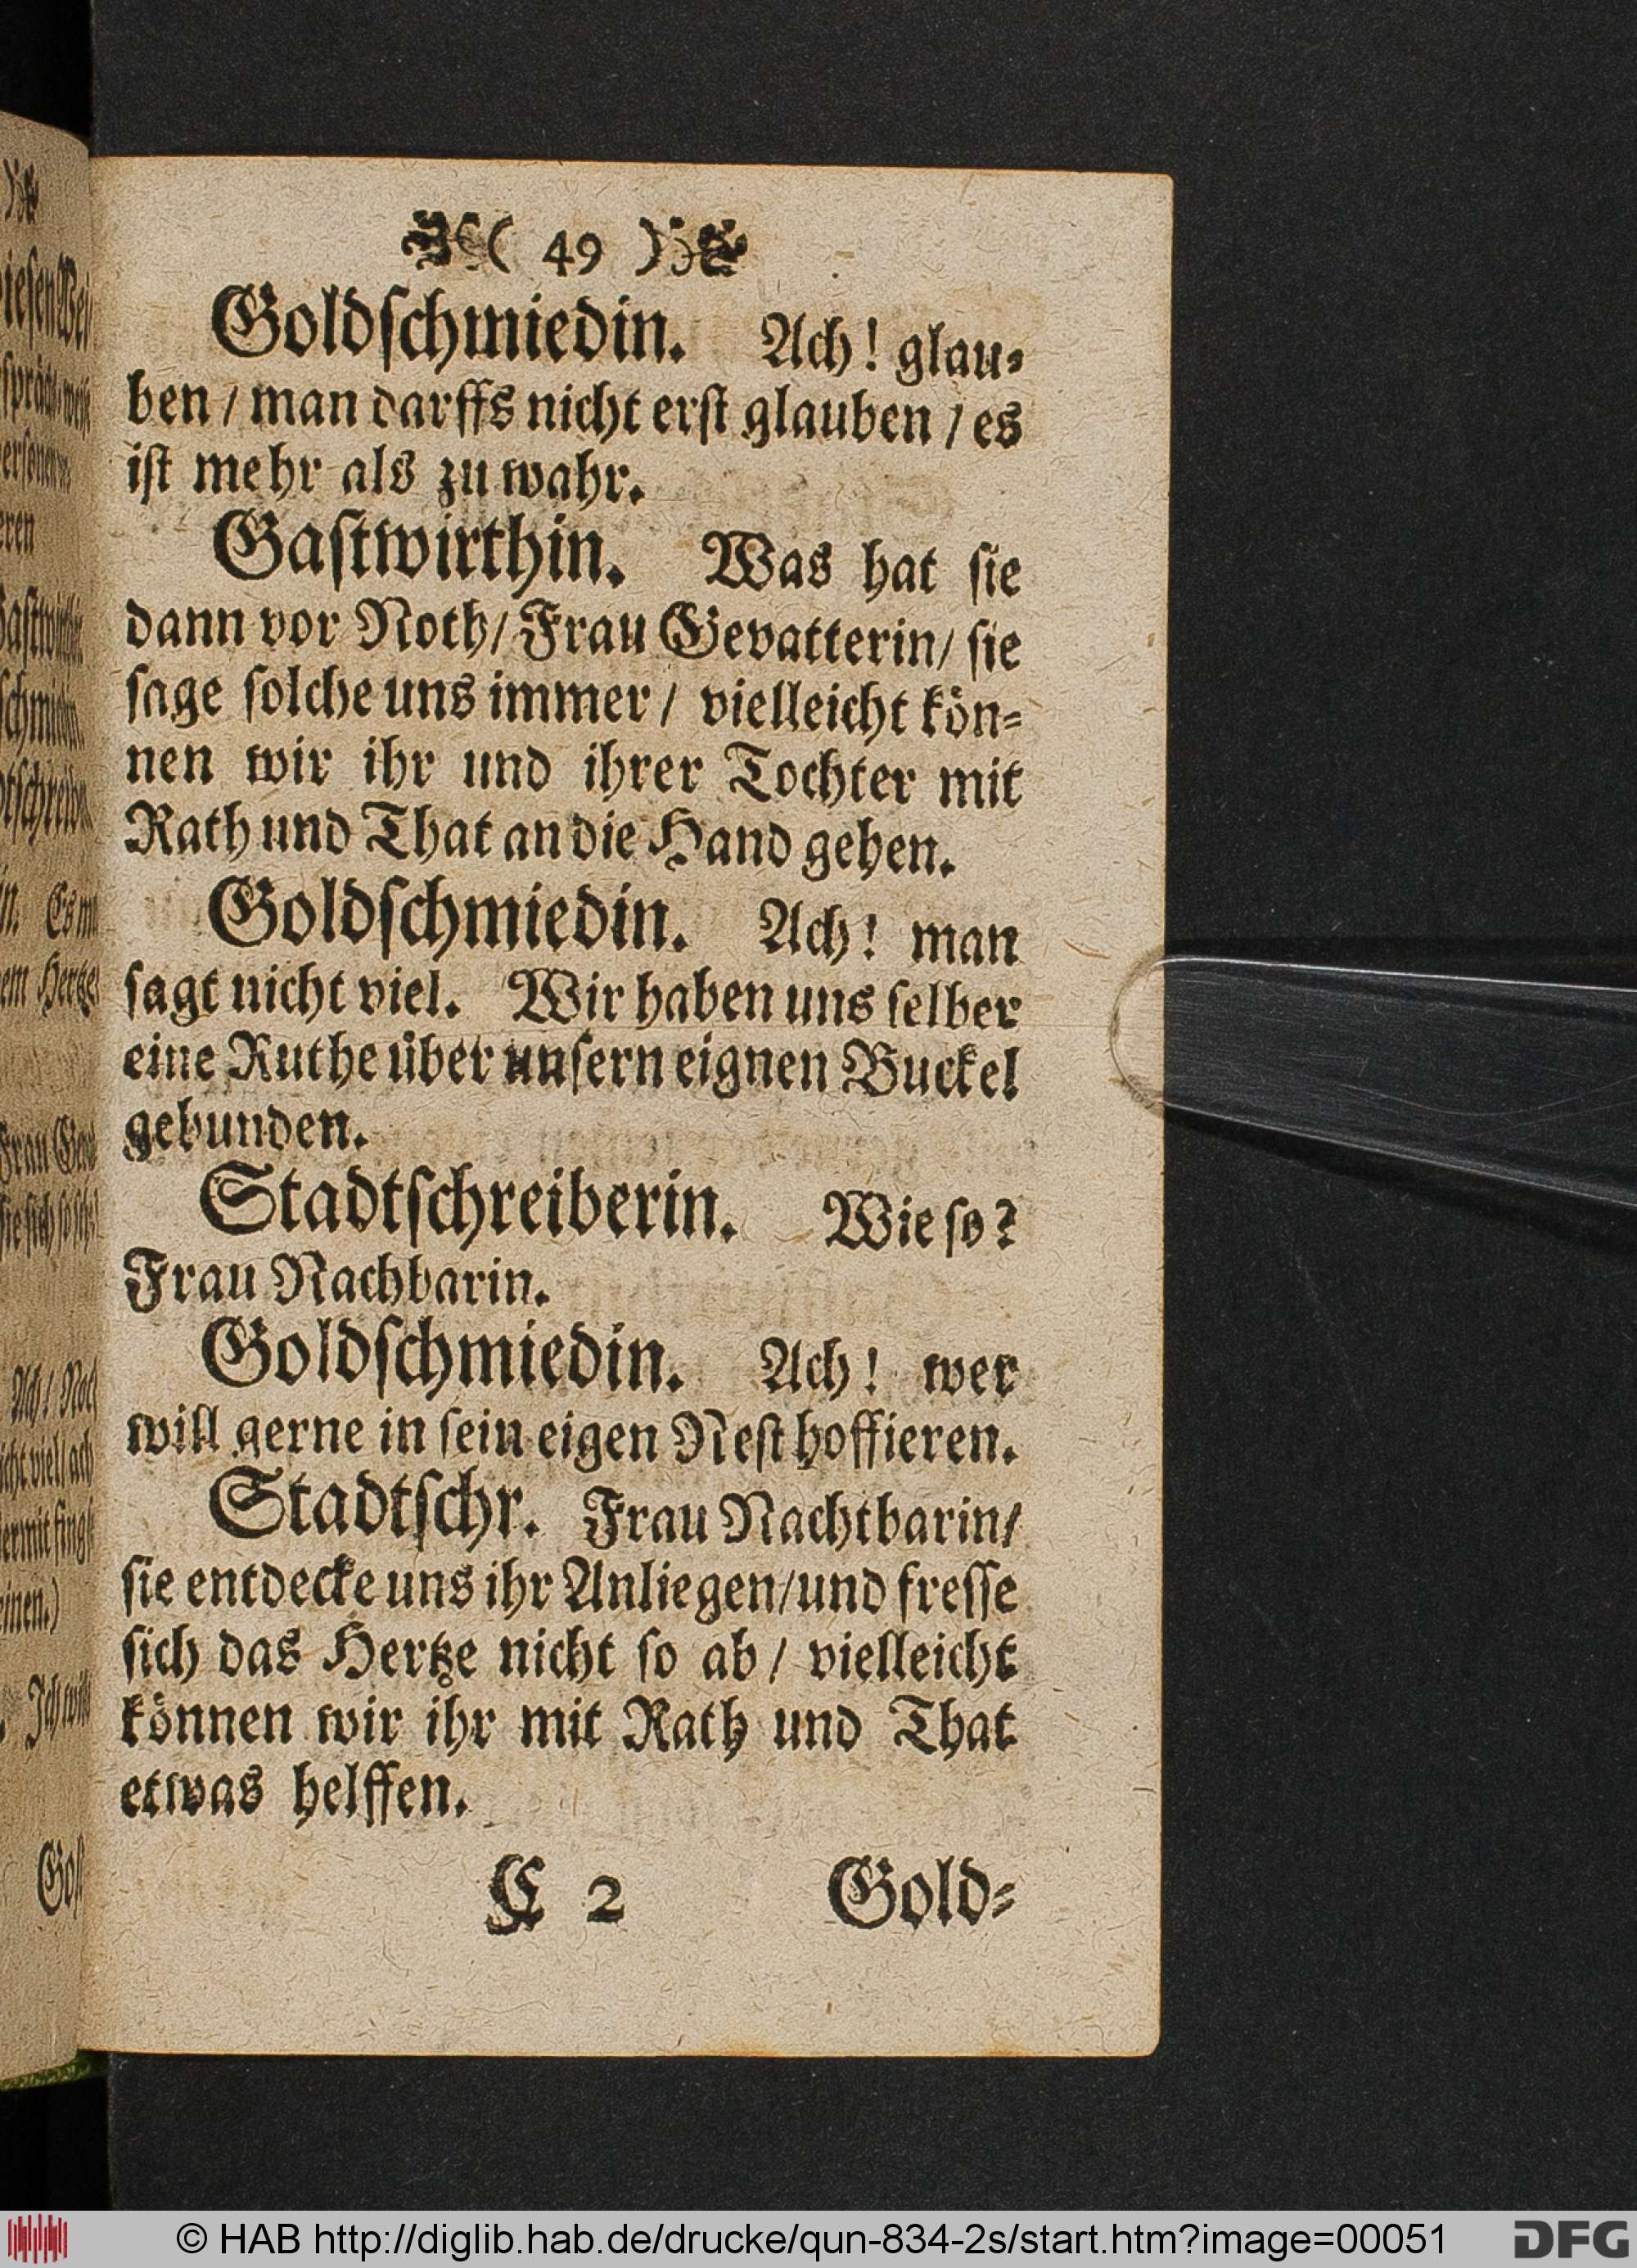 ( 49 )
Goldſchmiedin. Ach! glau-
ben / man darffs nicht erſt glauben / es
iſt mehr als zu wahr.
Gaſtwirthin. Was hat ſie
dann vor Noth / Frau Gevatterin / ſie
ſage ſolche uns immer / vielleicht kön-
nen wir ihr und ihrer Tochter mit
Rath und That an die Hand gehen.
Goldſchmiedin. Ach! man
ſagt nicht viel. Wir haben uns ſelber
eine Ruthe über unſern eignen Buckel
gebunden.
Stadtſchreiberin. Wie ſo?
Frau Nachbarin.
Goldſchmiedin. Ach! wer
will gerne in ſein eigen Neſt hoffieren.
Stadtſchr. Frau Nachtbarin /
ſie entdecke uns ihr Anliegen / und freſſe
ſich das Hertze nicht ſo ab / vielleicht
können wir ihr mit Rath und That
etwas helffen.
C 2 Gold-
© HAB http://diglib.hab.de/drucke/qun-834-2s/start.htm?image=00051 DFG